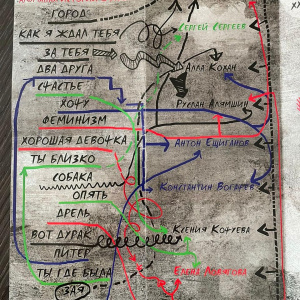 ГОРОД
КАК Я ЖДАЛ ТЕБЯ
ЗА ТЕБЯ
ДВА ДРУГА
СЧАСТЬЕ
ХОЧУ
ФЕМИНИЗМ
ХОРОШАЯ ДЕВОЧКА
ТЫ БЛИЗКО
СОБАКА
ОПЯТЬ
ДРЕЛЬ
ВОТ ДУРАК
ПИТЕР
ТЫ ГДЕ БЫЛА
ЗАЯ
СЕРГЕЙ СЕРГЕЕВ
АЛЛА КОХАН
РУСЛАН АЛЯМШИН
АНТОН ЕЩИГАНОВ
КОНСТАНТИН БОГАРЕВ
КСЕНИЯ КОЧУЕВА
ЕЛЕНА